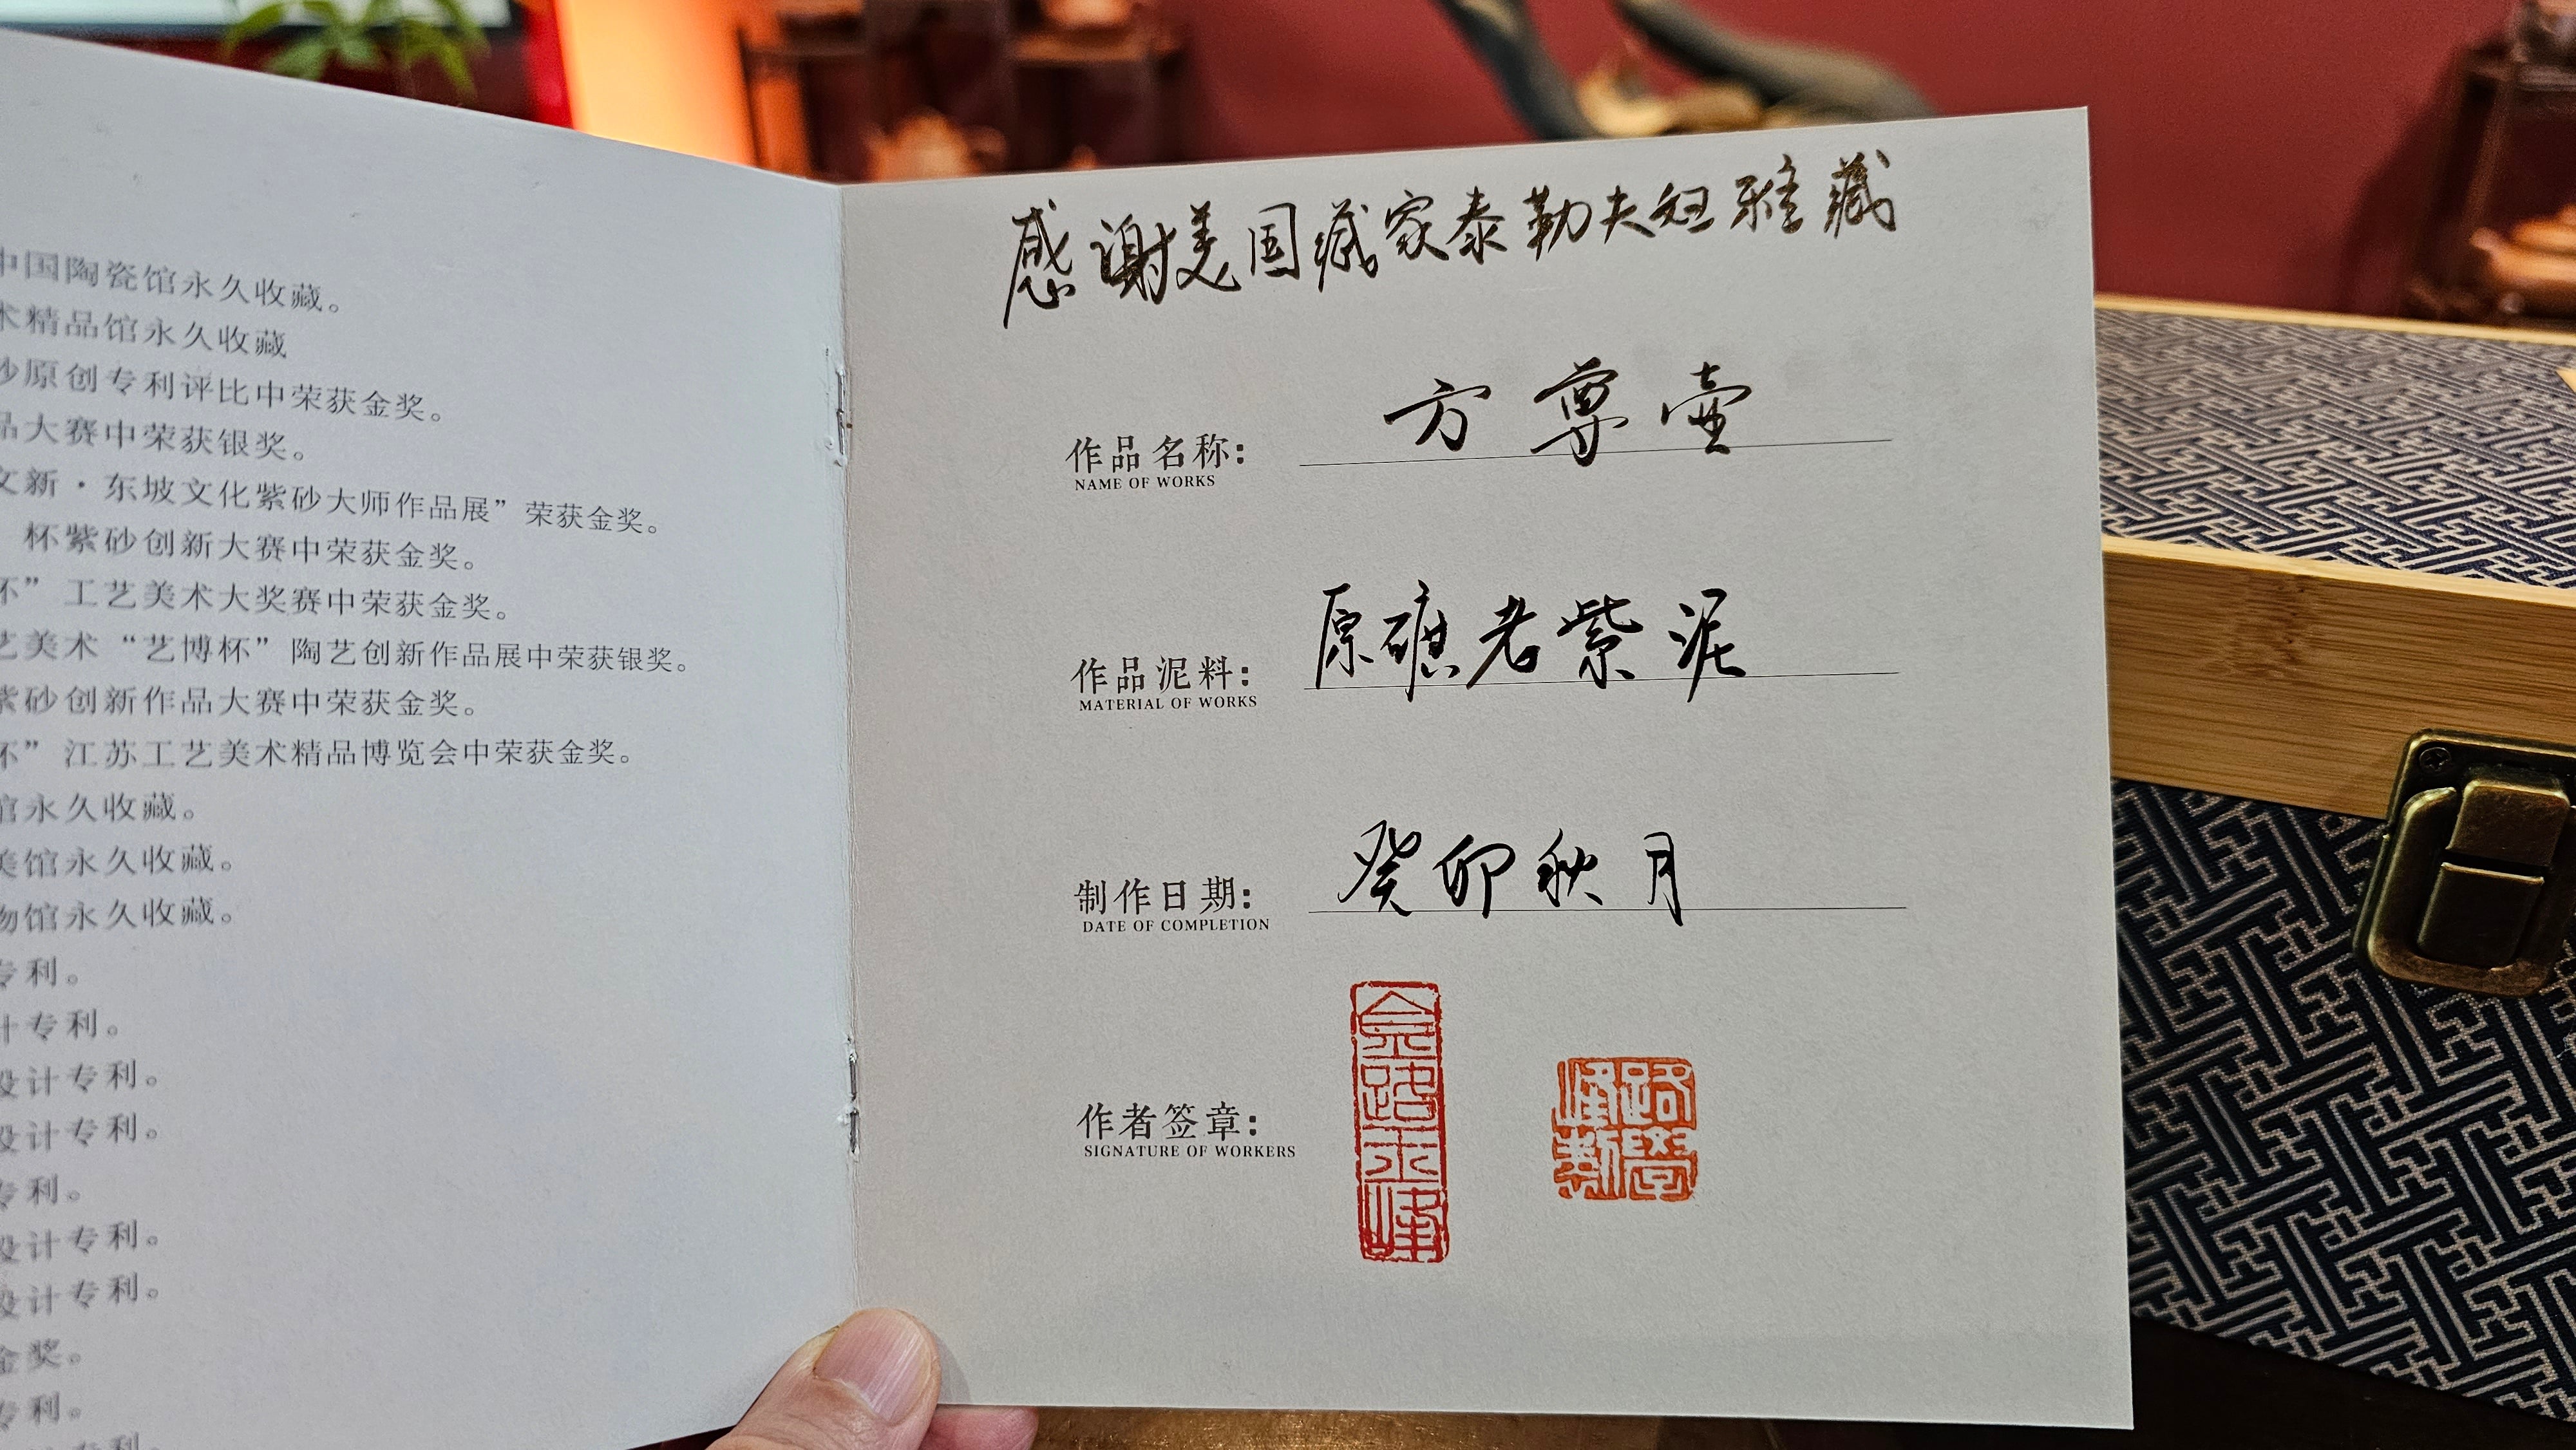 中国陶瓷馆永久收藏。
术精品馆永久收藏
砂原创专利评比中荣获金奖。
品大赛中荣获银奖。
文新·东坡文化紫砂大师作品展”荣获金奖。
杯紫砂创新大赛中荣获金奖。
杯”工艺美术大奖赛中荣获金奖。
艺美术“艺博杯”陶艺创新作品展中荣获银奖。
紫砂创新作品大赛中荣获金奖。
杯”江苏工艺美术精品博览会中荣获金奖。
馆永久收藏。
美馆永久收藏。
物馆永久收藏。
专利。
计专利。
设计专利。
设计专利。
专利。
设计专利。
设计专利。
金奖。
专利。
感谢美国藏家泰勒夫妇雅藏
作品名称: 方尊壶
NAME OF WORKS
作品泥料: 原礦老紫泥
MATERIAL OF WORKS
制作日期: 癸卯秋月
DATE OF COMPLETION
作者签章:
SIGNATURE OF WORKERS